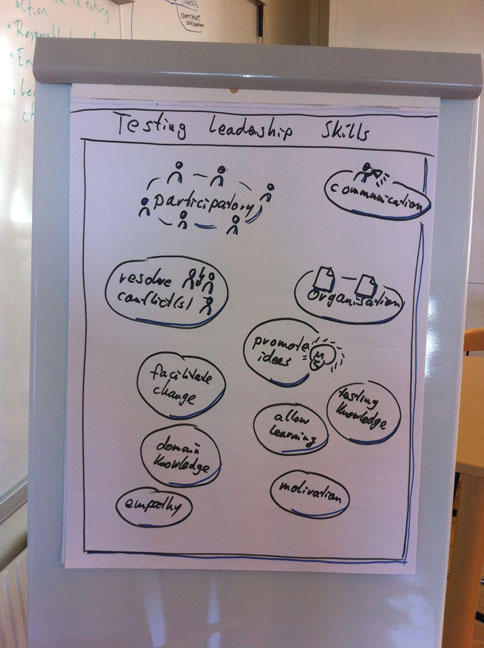 in taking
action
Testing Leadership Skills
participatory
communication
resolve
conflict(s)
organisation
promote
ideas
facilitate
change
testing
knowledge
allow
learning
domain
knowledge
motivation
empathy